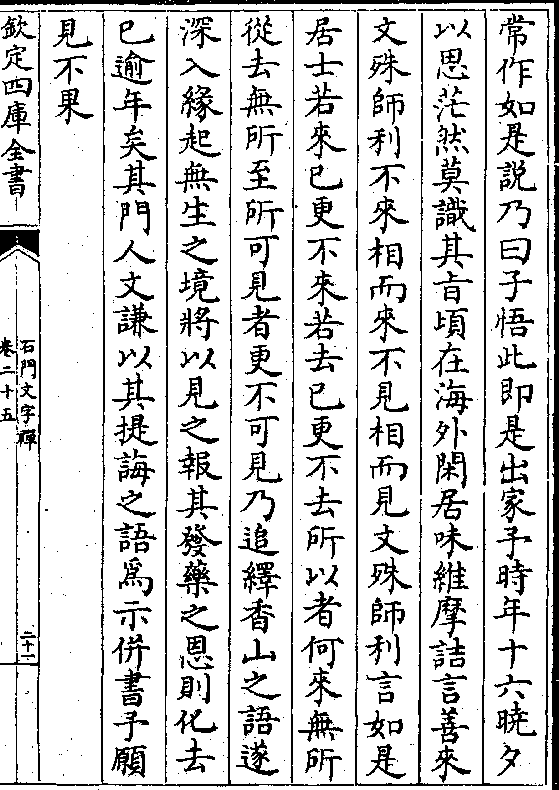 常作如是說乃曰子悟此即是出家予時年十六曉夕
以思茫然莫識其旨頃在海外閑居味維摩詰言善來
文殊師利不來相而來不見相而見文殊師利言如是
居士若來已更不來若去已更不去所以者何來無所
從去無所至所可見者更不可見乃追繹香山之語遂
深入緣起無生之境將以見之報其發藥之恩則化去
已逾年矣其門人文謙以其提誨之語為示併書予願
見不果
欽定四庫全書
石門文字禪
卷二十五
二十一